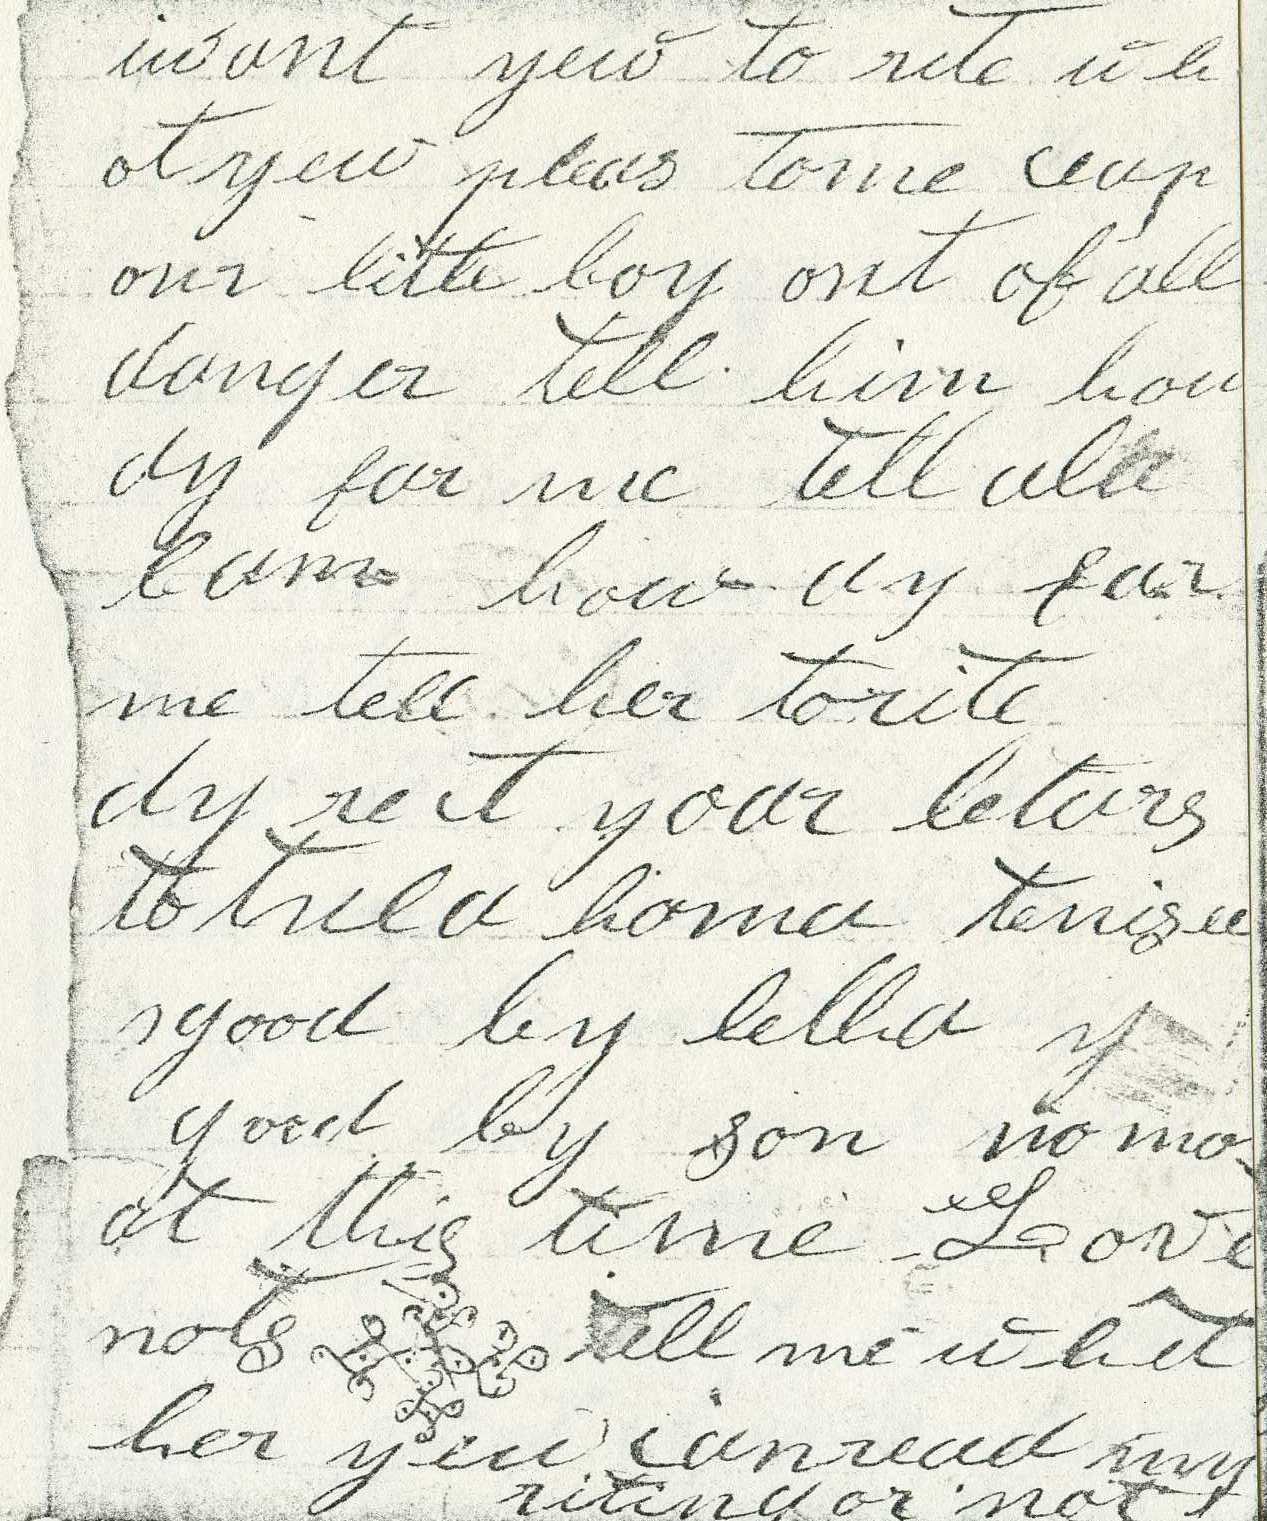 want yew to rite wh
at yew pleas to me ceap
our little boy out of all
danger tell him hou
dy for me tell
how dy for
me tell her to rite
dy rect your leturs
to tula homa tenisee
good by
good by son no mo
at this time Love
nots tell me whet
her yew can read my
riting or not